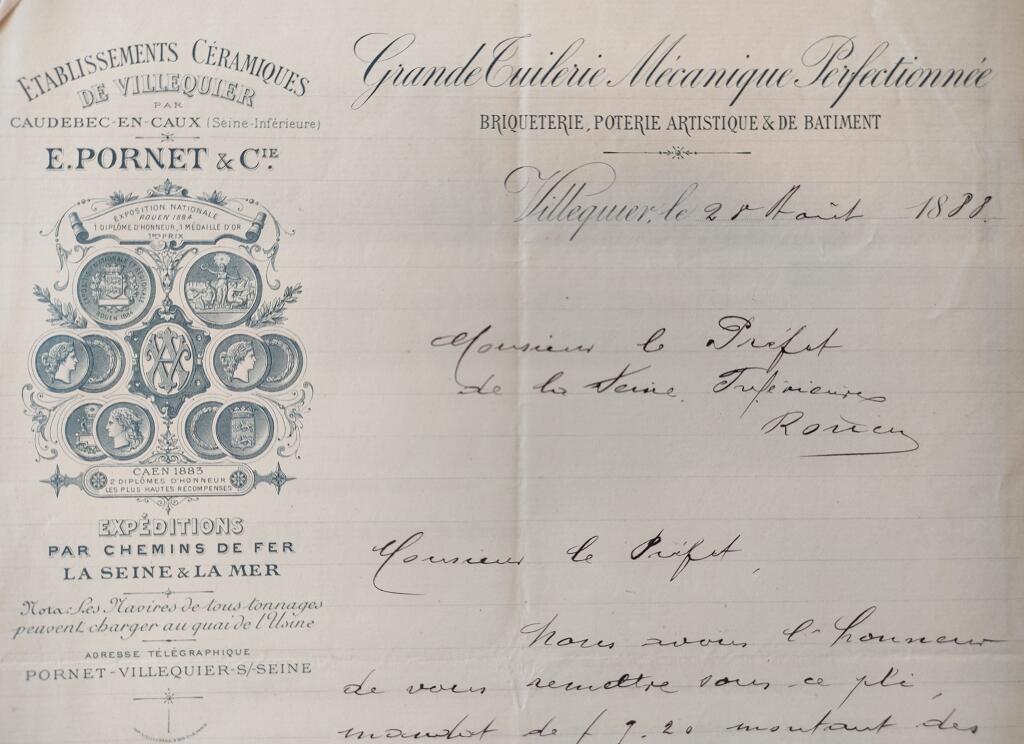 ETABLISSEMENTS CÉRAMIQUES
DE VILLEQUIER
PAR
CAUDEBEC-EN-CAUX (Seine-Inférieure)
E. PORNET & CIE
EXPOSITION NATIONALE
ROUEN 1884
1 DIPLÔME D'HONNEUR, 1 MÉDAILLE D'OR
1ER PRIX
ROUEN 1884
CAEN 1883
2 DIPLÔMES D'HONNEUR
LES PLUS HAUTES RÉCOMPENSES
EXPÉDITIONS
PAR CHEMINS DE FER
LA SEINE & LA MER
Nota: Les Navires de tous tonnages
peuvent charger au quai de l'Usine
ADRESSE TÉLÉGRAPHIQUE
PORNET-VILLEQUIER-S/SEINE
Grande Tuilerie Mécanique Perfectionnée
BRIQUETERIE, POTERIE ARTISTIQUE & DE BATIMENT
Villequier, le Août 1888.
Monsieur le Préfet
de la Seine Inférieure
Rouen
Monsieur le Préfet,
Nous avons l'honneur
de vous remettre sous ce pli,
mandat de f 9.20 montant des